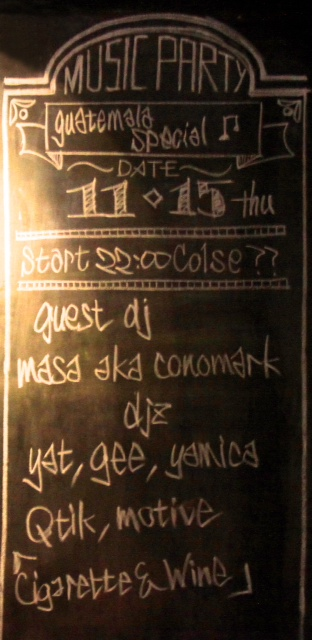 MUSIC PARTY
guatemala
special ♫
DATE
11◇15 thu
Start 22:00 Colse ??
guest dj
masa aka conomark
djz
yat, gee, yamica
Qtik, motive
「Cigarette & Wine」